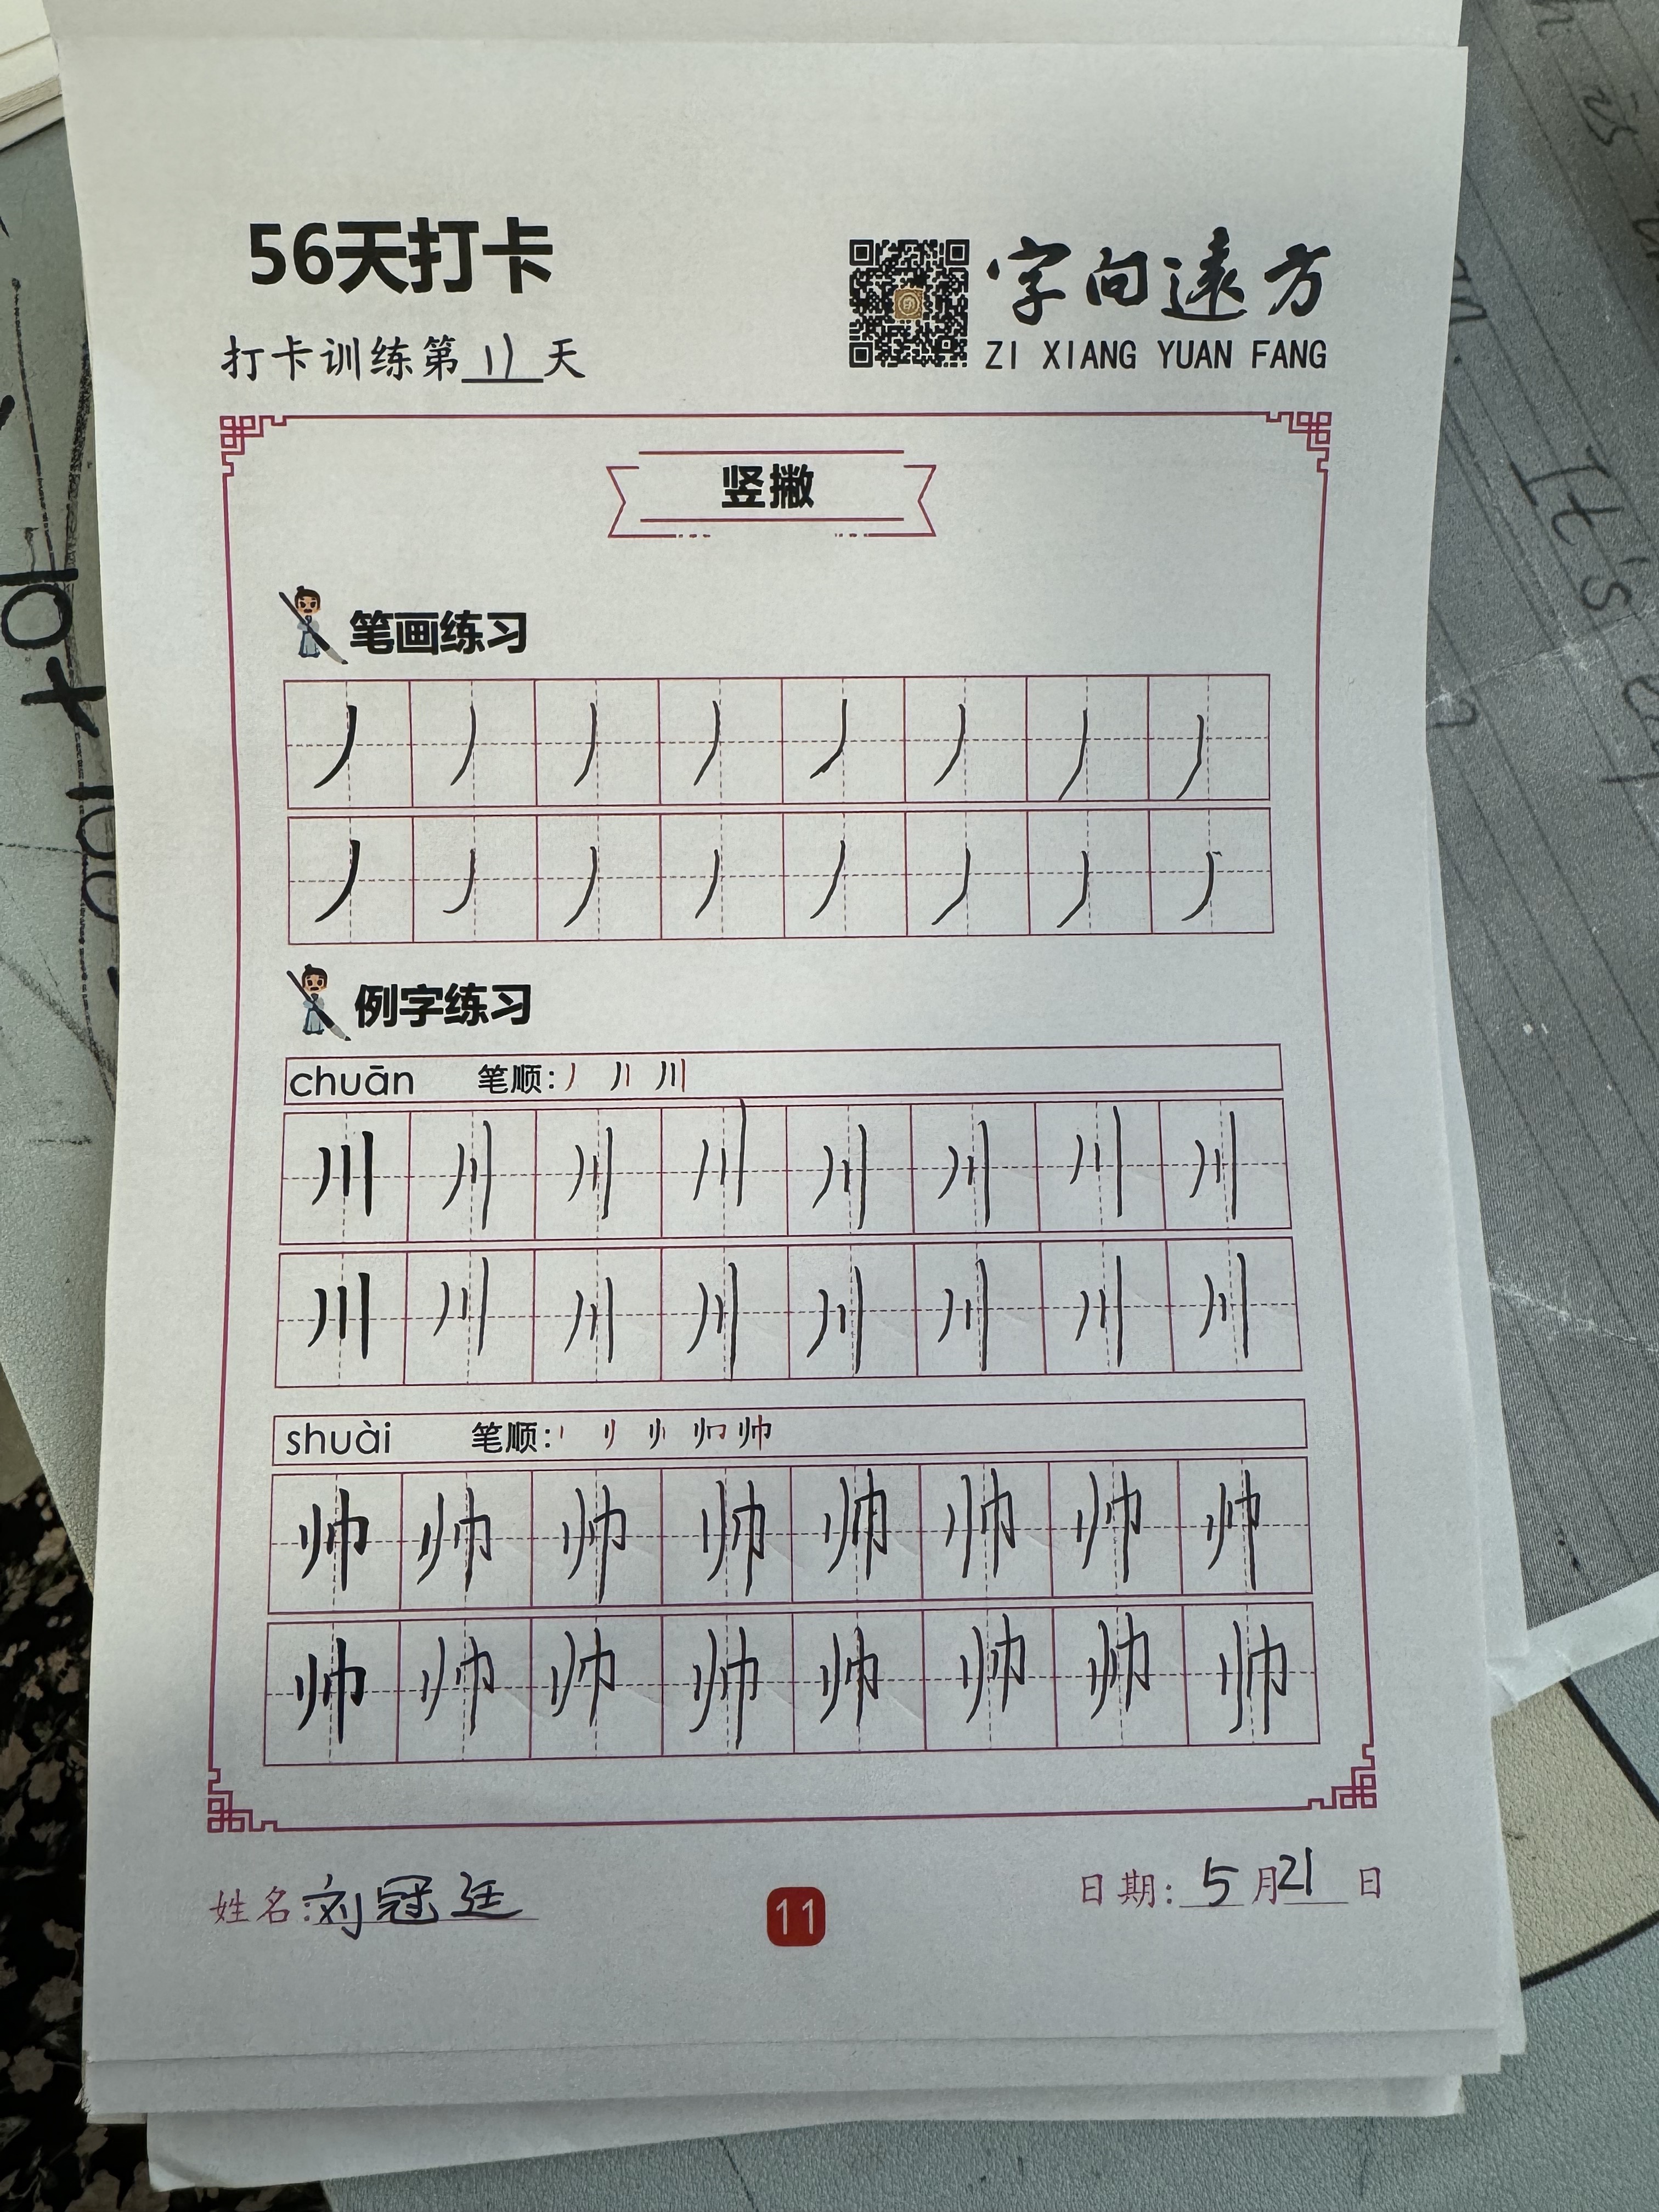 56天打卡
打卡训练第11天
字向遠方
ZI XIANG YUAN FANG
竖撇
笔画练习
丿 丿 丿 丿 丿 丿 丿 丿
丿 丿 丿 丿 丿 丿 丿 丿
例字练习
chuān 笔顺: 丿 川
川 川 川 川 川 川 川 川
川 川 川 川 川 川 川 川
shuài 笔顺: 帅
帅 帅 帅 帅 帅 帅 帅 帅
帅 帅 帅 帅 帅 帅 帅 帅
姓名:刘冠廷
11
日期: 5月21日
10+100
It's